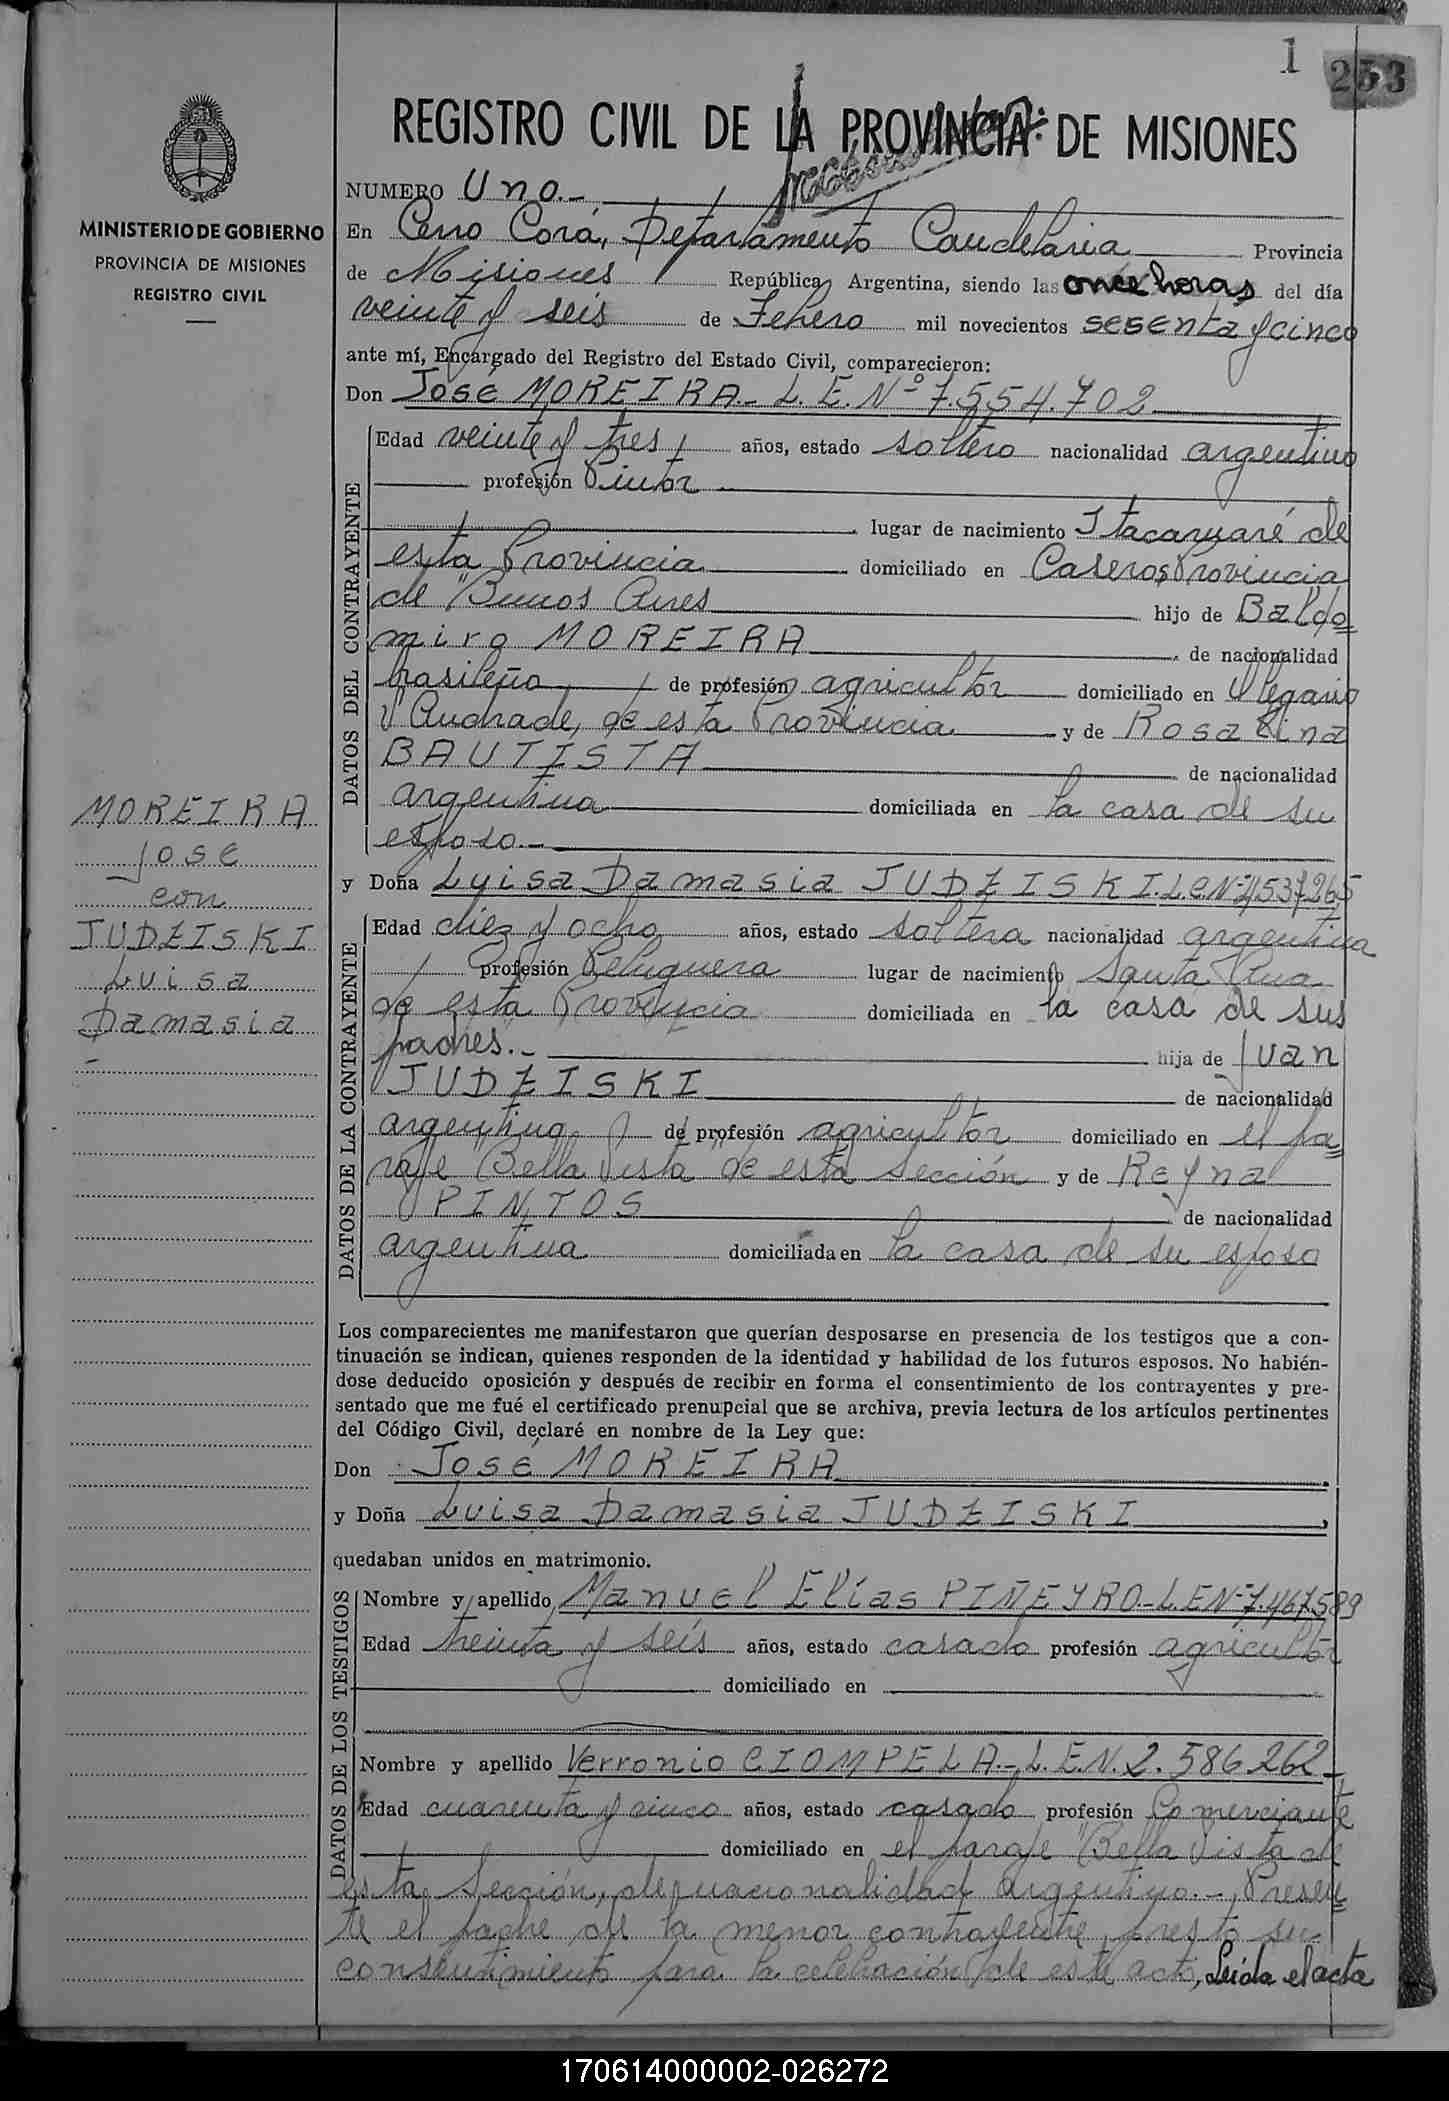 1 253
REGISTRO CIVIL DE LA PROVINCIA DE MISIONES
MINISTERIO DE GOBIERNO
PROVINCIA DE MISIONES
REGISTRO CIVIL
NUMERO Uno.-
En Cerro Corá, Departamento Candelaria Provincia
de Misiones República Argentina, siendo las once horas del día
veinte y seis de Febrero mil novecientos sesenta y cinco
ante mí, Encargado del Registro del Estado Civil, comparecieron:
Don José MOREIRA.- L.E.Nº 7.554.702
DATOS DEL CONTRAYENTE
Edad veinte y tres, años, estado soltero nacionalidad argentino
profesión Pintor
lugar de nacimiento Itacaruaré de
esta Provincia domiciliado en Caseros Provincia
de Buenos Aires hijo de Baldo=
miro MOREIRA de nacionalidad
brasileño, de profesión agricultor domiciliado en Olegario
V Andrade, de esta Provincia y de Rosalina
BAUTISTA de nacionalidad
argentina domiciliada en la casa de su
esposo.-
MOREIRA
José
con
JUDZISKI
Luisa
Damasia
-
y Doña Luisa Damasia JUDZISKI.L.C.Nº
DATOS DE LA CONTRAYENTE
Edad diez y ocho años, estado soltera nacionalidad argentina
profesión Peluquera lugar de nacimiento Santa Ana
de esta Provincia domiciliada en la casa de sus
padres.- hija de Juan
JUDZISKI de nacionalidad
argentino, de profesión agricultor domiciliado en el pa=
raje "Bella Vista" de esta Sección y de Reyna
PINTOS de nacionalidad
argentina domiciliada en la casa de su esposo
Los comparecientes me manifestaron que querían desposarse en presencia de los testigos que a con-
tinuación se indican, quienes responden de la identidad y habilidad de los futuros esposos. No habién-
dose deducido oposición y después de recibir en forma el consentimiento de los contrayentes y pre-
sentado que me fué el certificado prenupcial que se archiva, previa lectura de los artículos pertinentes
del Código Civil, declaré en nombre de la Ley que:
Don José MOREIRA
y Doña Luisa Damasia JUDZISKI
quedaban unidos en matrimonio.
DATOS DE LOS TESTIGOS
Nombre y apellido Manuel Elías PIÑEYRO.-L.E.Nº 7.467.589
Edad treinta y seis años, estado casado profesión agricultor
domiciliado en
Nombre y apellido Verronio CIOMPELA.-L.E.N. 2.586.262
Edad cuarenta y cinco años, estado casado profesión Comerciante
domiciliado en el paraje "Bella Vista de
esta Sección, de nacionalidad argentino.- Presen=
te el padre de la menor contrayente, prestó su
consentimiento para la celebración de este acto, Leída el acta
170614000002-026272